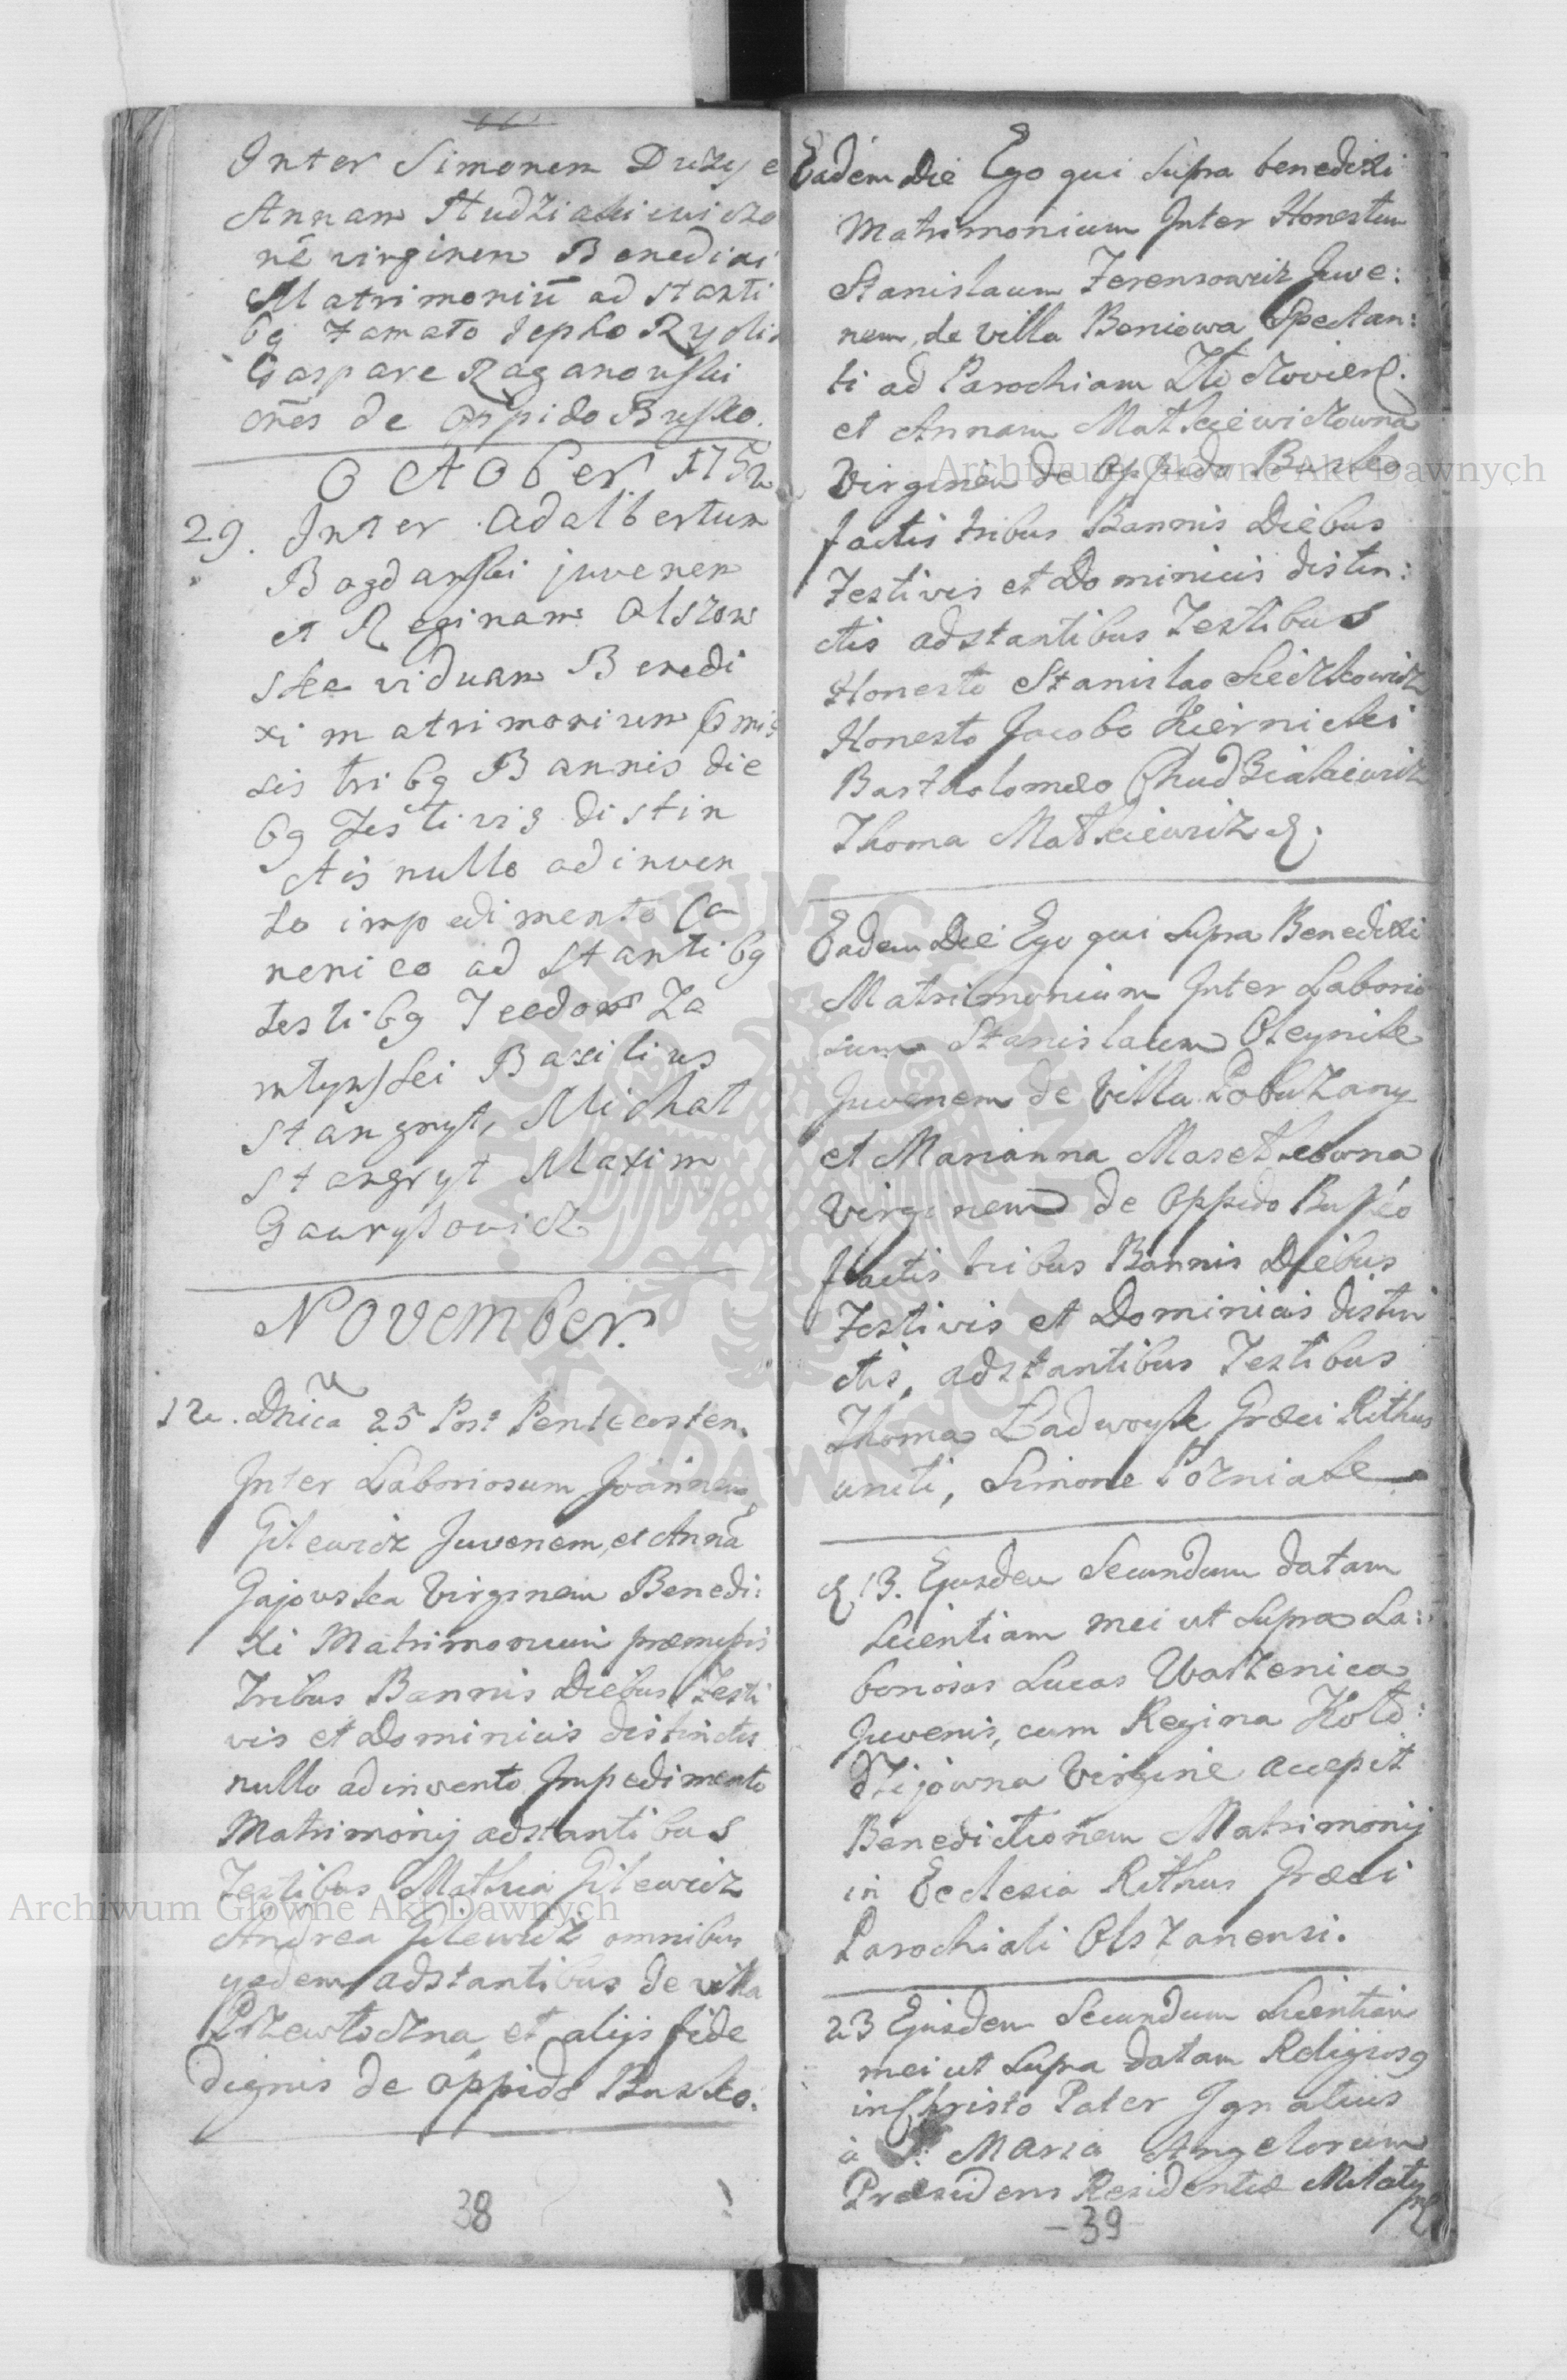 Inter Simonem Duzy e
Annam Studziakiewiczo
nē virginem Benedixi
Matrimoniū ad stanti
bg Famato Jepho Rycli
Gaspare Raganowski
oēs de Oppido Busko.
OCtober 1752
29. Inter Adalbertum
Bogdański juvenem
et Reginam Olszow
ska viduam Benedi
xi matrimonium Omis
sis tribg Bannis die
bg Festivis distin
ctis nullo adinven
to impedimento Ca
nonico ad stantibg
testibg Teodor Za
młyńskei Baxilius
Stangryt, Michał
Stangryt Maxim
Gawrysowicz
November.
12. Dnica 25 Post Pentecosten.
Inter Laboriosum Joannem
Gilewicz Juvenem, et Annā
Gajowska Virginem Benedi:
xi Matrimonium præmissis
Tribus Bannis Diebus Festi
vis et Dominicis distinctis
nullo adinvento Impedimento
Matrimonij adstantibus
Testibus Mathia Gilewicz
Andrea Gilewicz omnibus
ysdem adstantibus de villa
et alijs fide
dignis de oppido Busko.
38
Eadem Die Ego qui supra benedixi
Matrimonium Inter Honestum
Stanislaum Ferensowicz Juve:
nem, de villa Beniowa Spectan:
ti ad Parochiam
et Annam Matkiewiczowna
Virginem de Oppido Busko
factis tribus Bannis Diebus
Festivis et Dominicis distin:
ctis adstantibus Testibus
Honesto Stanislao Sieczkowicz
Honesto Jacobo Kiernicki
Bartholomeo Chudziakiewicz
Thoma Matkiewicz &.
Eadem Die Ego qui supra Benedixi
Matrimonium Inter Laborio
sum Stanislaum Oleynik
Juvenem de Villa Pobuzany
et Marianna Masetkowna
Virginem de Oppido Busko
factis tribus Bannis Diebus
Festivis et Dominicis distin
ctis, adstantibus Testibus
Thoma Ladwoyk Græci Rithus
uniti, Simone Pozniak
& 13. Ejusdem Secundum datam
Scientiam mei ut supra La:
boriosus Lucas Watzenica
Juvenis, cum Regina Kołd:
dzijowna Virgine accepit
Benedictionem Matrimonij
in Ecclesia Rithus Græci
Parochiali Olszanensi.
23 Ejusdem Secundum Scientiam
mei ut supra datam Religiosg
in Christo Pater Ignatius
à S: Maria Angelorum
Præsidens Residentiæ Milatyn
-39-
Archiwum Główne Akt Dawnych
Archiwum Główne Akt Dawnych
ARCHIWUM GŁÓWNE AKT DAWNYCH